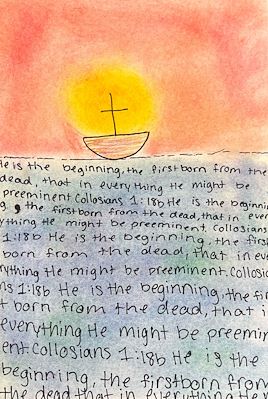 He is the beginning, the firstborn from the
dead, that in everything He might be
preeminent Collosians 1:18b He is the beginnin
g, the firstborn from the dead, that in ever
ything He might be preeminent. Collosians
1:18b He is the beginning, the first
born from the dead, that in eve
rything He might be preeminent. Collosia
ns 1:18b He is the beginning, the firs
t born from the dead, that in
everything He might be preemin
ent. Collosians 1:18b He is the
beginning, the firstborn from
the dead that in everything He